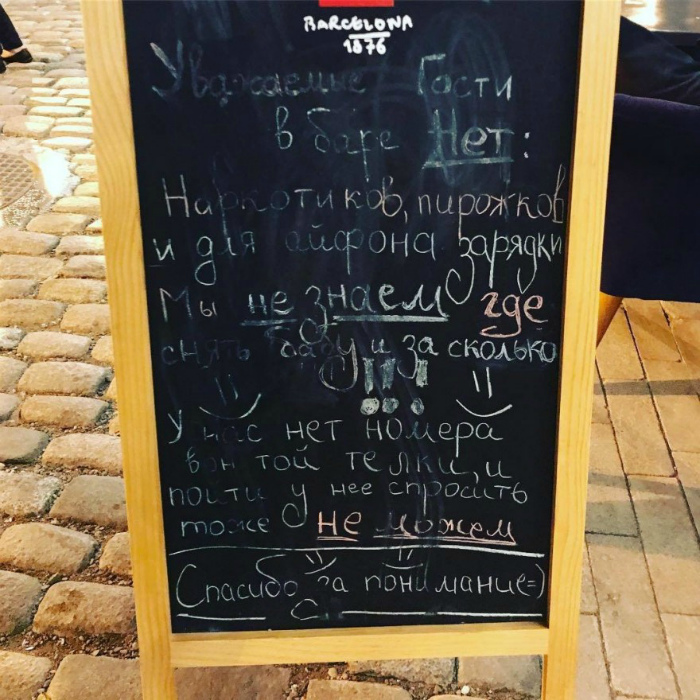 BARCELONA
1876
Уважаемые Гости
в баре Нет:
Наркотиков, пирожков
и для айфона зарядки
Мы не знаем где
снять бабу и за сколько
!!!
У нас нет номера
вон той телки, и
пойти у нее спросить
тоже не можем
Спасибо за понимание=)